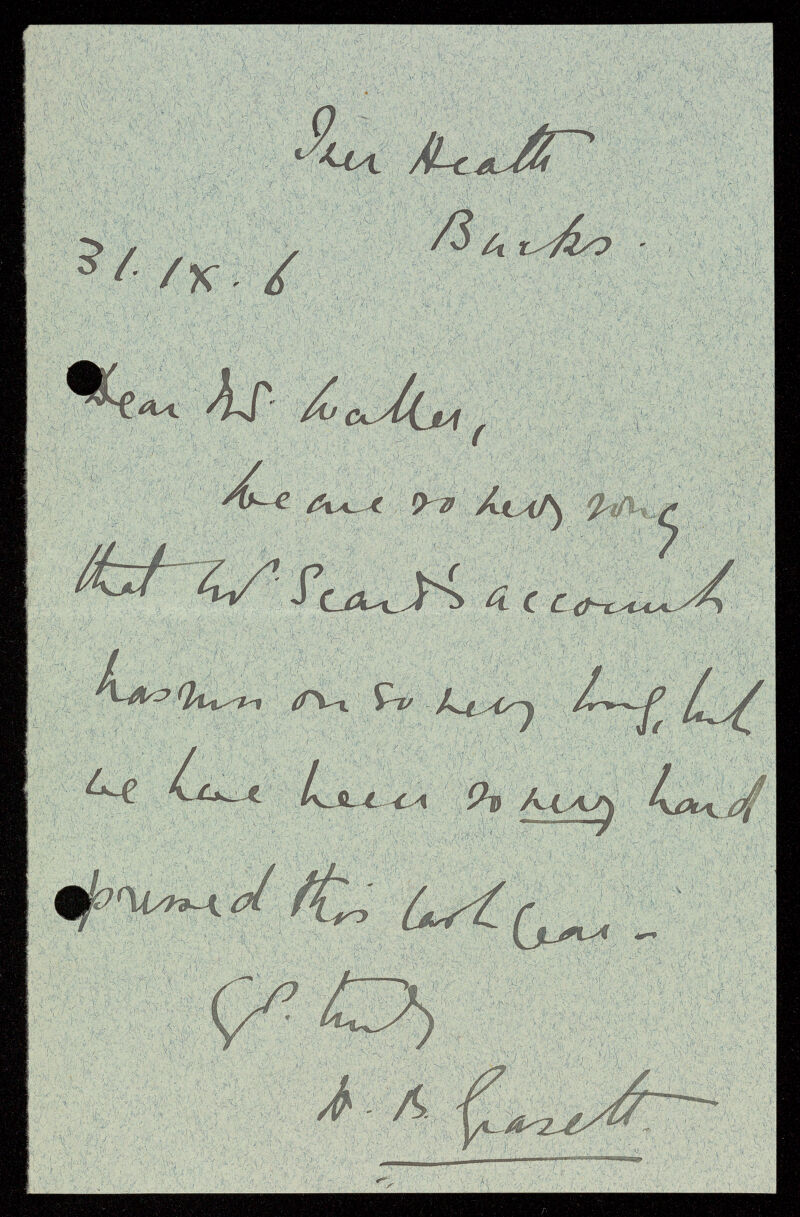 Iver Heath
Bucks.
31. IX. 6
Dear Mr. Walker,
We are so very sorry
that Mr. Scard's account
has run on so very long, but
we have been so very hard
pressed this last year -
Yrs. truly
H. B. Grasett.